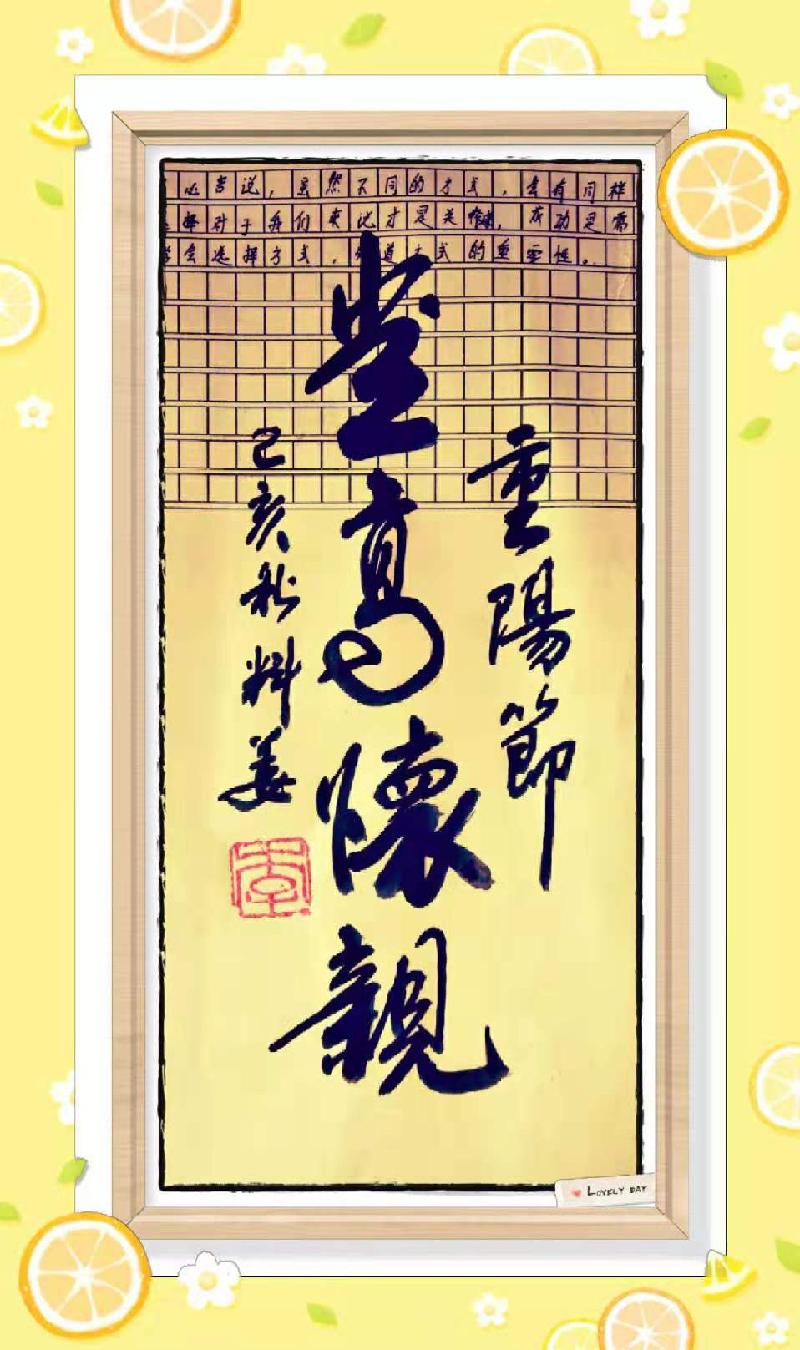 说，虽然不同的方式，会有同样
择对于我们来说才是关键，成功是需
会选择方式，知道方式的重要性。
重陽節
登高懷親
己亥秋
LOVELY DAY